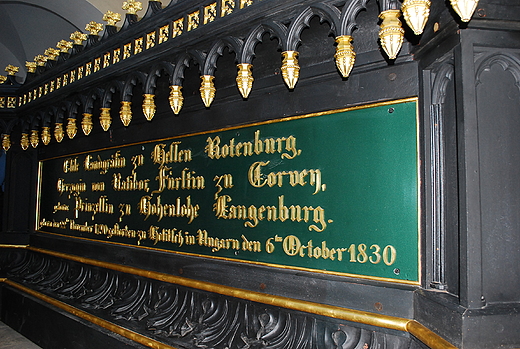 Elise Landgräfin zu Hessen Rotenburg,
Herzogin von Ratibor, Fürstin zu Corvey,
geborne Prinzessin zu Hohenlohe Langenburg.
geboren den November 1790, gestorben zu Holitsch in Ungarn den 6ten October 1830